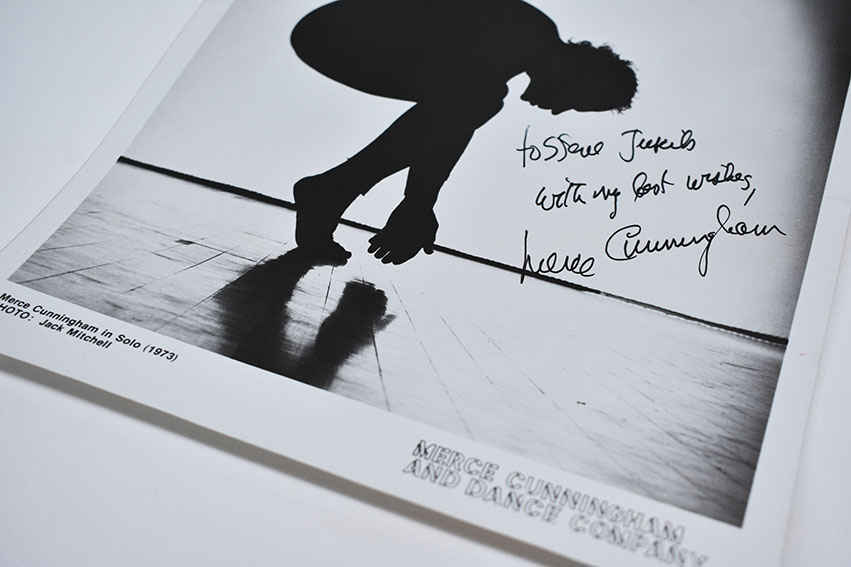 with my best wishes,
Merce Cunningham
Merce Cunningham in Solo (1973)
HOTO: Jack Mitchell
MERCE CUNNINGHAM
AND DANCE COMPANY